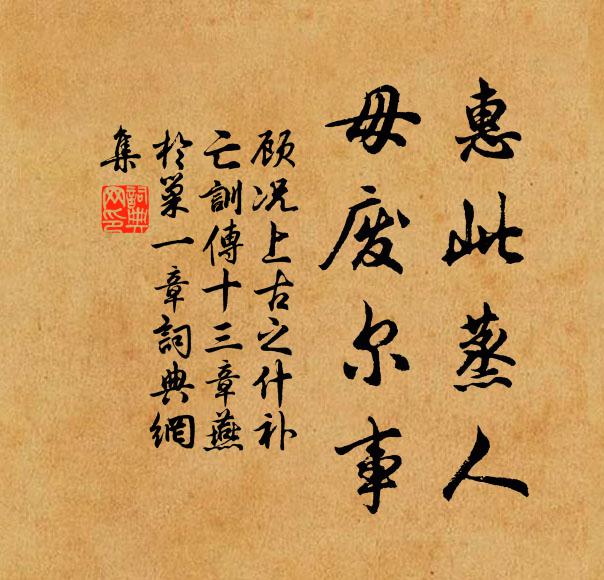 惠此蒸人
毋废尔事
顾况上古之什补
亡訓傳十三章燕
於巢一章詞典網
集
詞典
网印